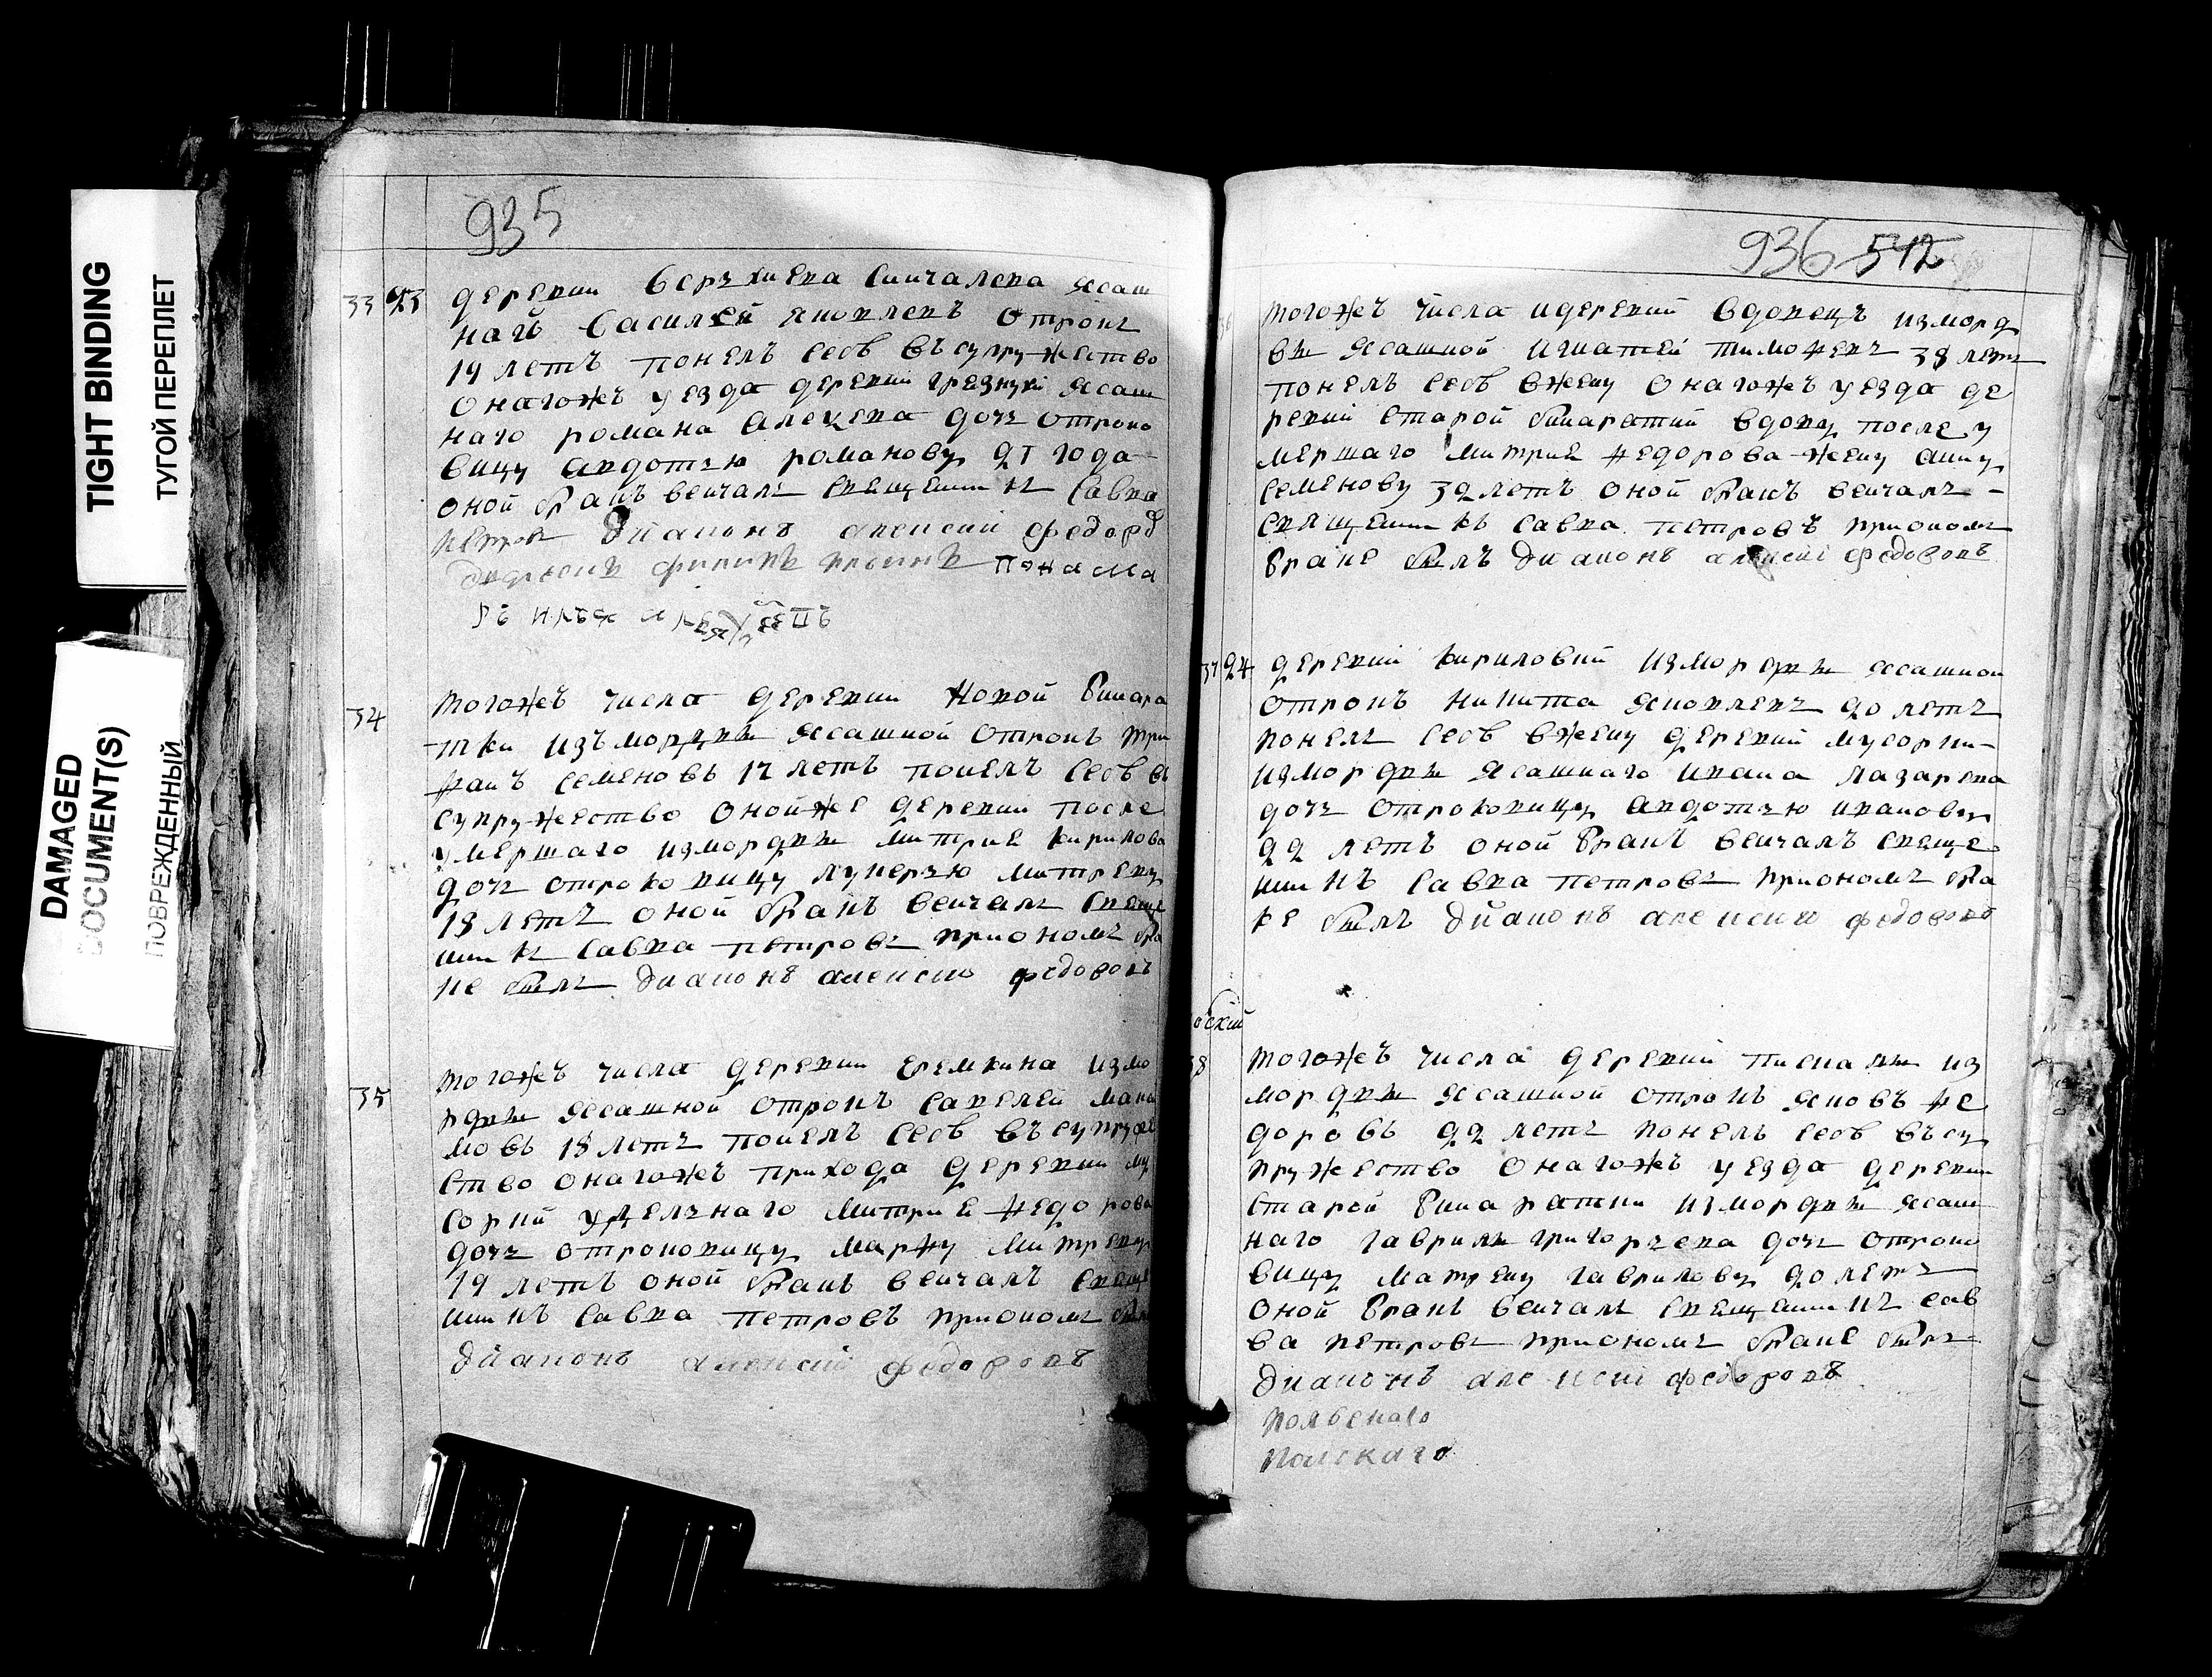 TIGHT BINDING
ТУГОЙ ПЕРЕПЛЕТ
DAMAGED
DOCUMENT(S)
ПОВРЕЖДЕННЫЙ
935
33 23 деревни Верхнева Симчалева ясаш
наго Василей яковлевъ отрокъ
19 летъ понелъ себѣ въ супружество
онагожъ уезда деревни грезнухи ясаш
наго романа Алецева дочь отроко
вицу авдотью романову 21 года
оной бракъ венчалъ священникъ савва
петров диаконъ алексий федоров
понама
ръ
34 тогожъ числа деревни новой бинара
тки изъ мордвы ясашной отрокъ три
фанъ семеновъ 17 летъ понелъ себѣ въ
супружество онойже деревни после
умершаго измордвы митрие кирилова
дочь отроковицу лукерью митреву
18 летъ оной бракъ венчалъ свяще
нникъ савва петровъ приономъ бра
ке былъ диаконъ алексий федоровъ
35 тогожъ числа деревни еремкина измо
рдвы ясашной отрокъ савелей макси
мовъ 18 летъ понелъ себѣ въ супруже
ство онагожъ прихода деревни му
сорки уделнаго митрие федорова
дочь отроковицу марфу митреву
19 летъ оной бракъ венчалъ свяще
нникъ савва петровъ приономъ былъ
диаконъ алексий федоровъ
936 542
тогожъ числа идеревни вдовецъ измор
вы ясашной игнатей тимофевъ 38 летъ
понелъ себѣ вжену онагожъ уезда де
ревни старой бинаратки вдову после у
мершаго митрие федорова жену анну
семенову 32 летъ оной бракъ венчалъ
священникъ савва петровъ приономъ
браке былъ диаконъ алексий федоровъ
37 24 деревни кириловки измордвы ясашной
отрокъ никита яковлевъ 20 летъ
понелъ себѣ вжену деревни мусорки
измордвы ясашнаго ивана лазарева
дочь отроковицу авдотью иванову
22 летъ оной бракъ венчалъ свяще
нникъ савва петровъ приономъ бра
ке былъ диаконъ алексии федоровъ
38 тогожъ числа деревни пискалы из
мордвы ясашной отрокъ яковъ фе
доровъ 22 летъ понелъ себѣ въ су
пружество онагожъ уезда деревни
старой бинаратки измордвы ясаш
наго гаврилы григорьева дочь отроко
вицу матрену гаврилову 20 летъ
оной бракъ венчалъ священникъ сав
ва петровъ приономъ браке былъ
диаконъ алексий федоровъ